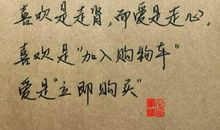 喜欢是走肾，而爱是走心，
喜欢是“加入购物车”
爱是“立即购买”